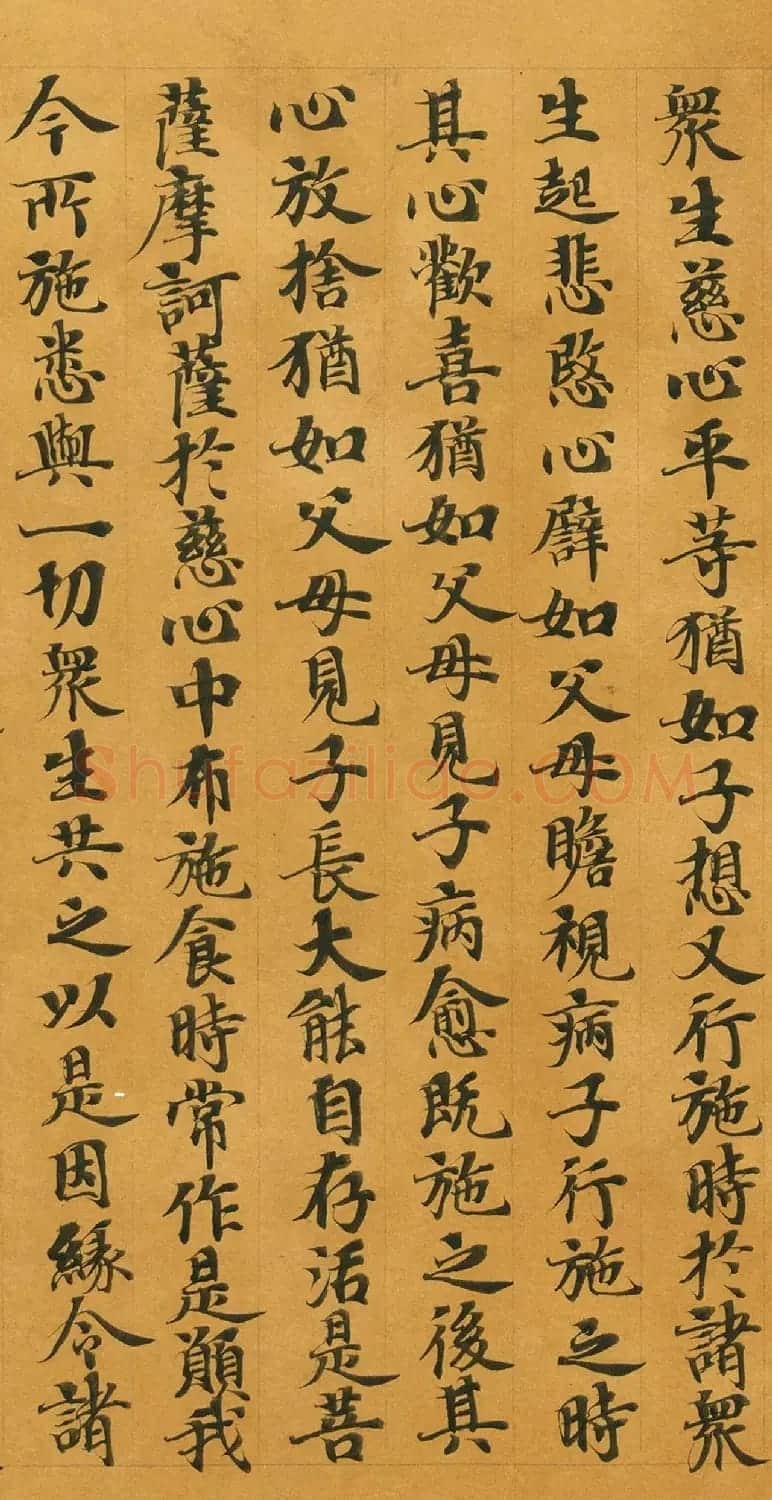 眾生慈心平等猶如子想又行施時於諸眾
生起悲愍心譬如父母瞻視病子行施之時
其心歡喜猶如父母見子病愈既施之後其
心放捨猶如父母見子長大能自存活是菩
薩摩訶薩於慈心中布施食時常作是願我
今所施悉與一切眾生共之以是因緣令諸
Shufaziliao.COM